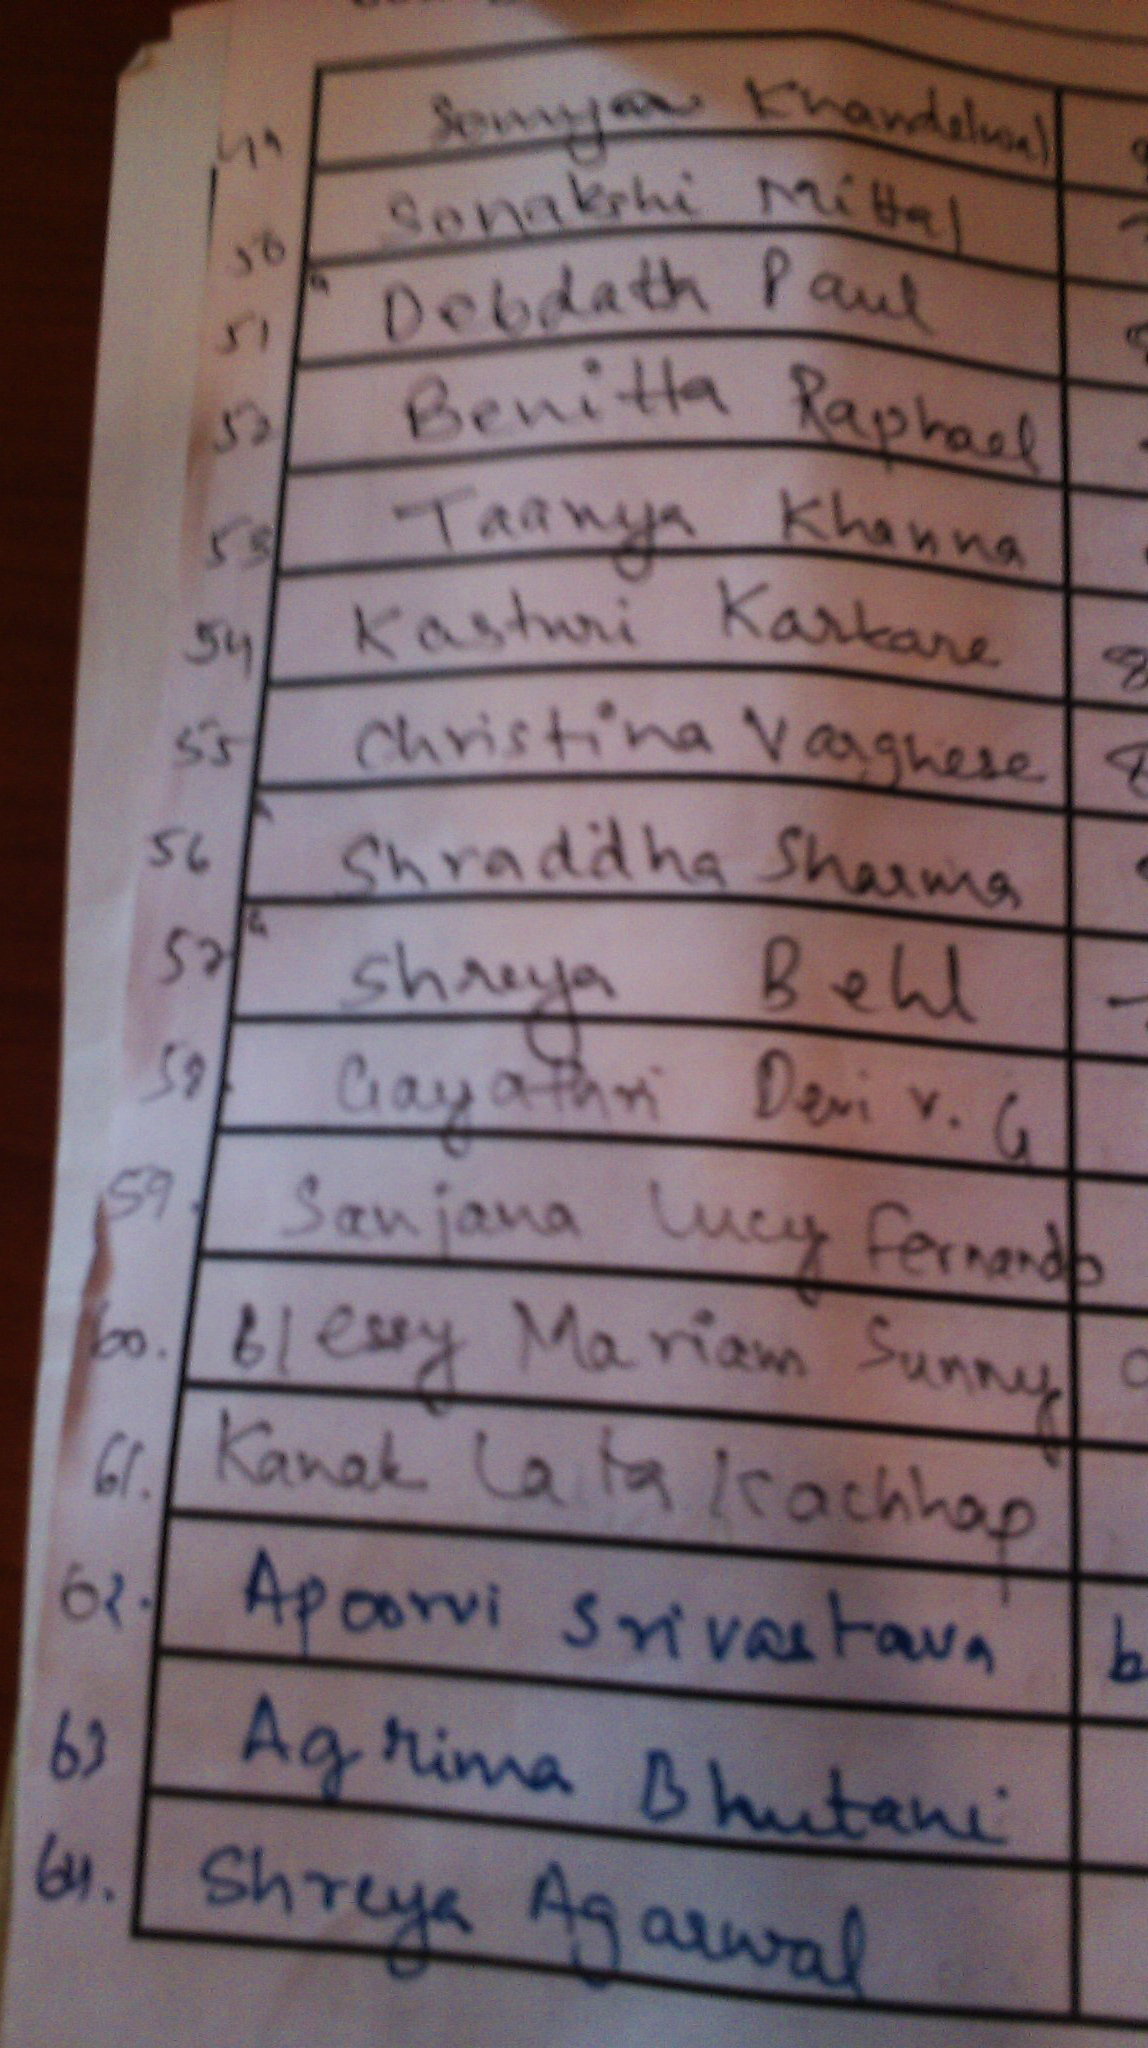 49 Somyaa Khandelwal
50 Sonakshi Mittal
51 Debdath Paul
52 Benitta Raphael
53 Taanya Khanna
54 Kasturi Karkare
55 Christina Varghese
56 Shraddha Sharma
57 Shreya Behl
58. Gayathri Devi V. G
59. Sanjana Lucy Fernando
60. Blessy Mariam Sunny
61. Kanak Lata Kachhap
62. Apoorvi Srivastava
63 Agrima Bhutani
64. Shreya Agarwal